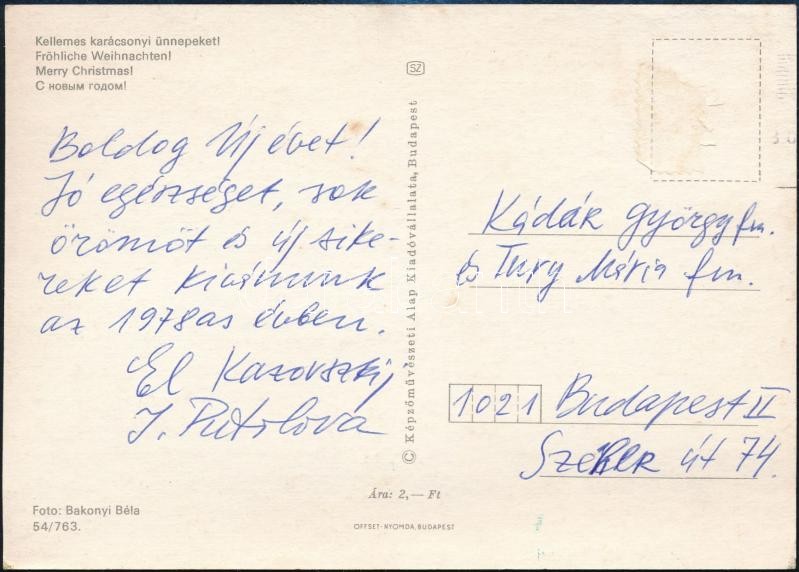 Kellemes karácsonyi ünnepeket!
Fröhliche Weihnachten!
Merry Christmas!
С новым годом!
Boldog Új évet!
Jó egészséget, sok
örömöt és új sike-
reket kivánunk
az 1978as évben.
El Kazovszkij
I. Putolova
Foto: Bakonyi Béla
54/763.
SZ
© Képzőművészeti Alap Kiadóvállalata, Budapest
Ára: 2,— Ft
OFFSET-NYOMDA, BUDAPEST
Kádár György fm.
és Tury Mária fm.
1021 Budapest II
Székler út 74.